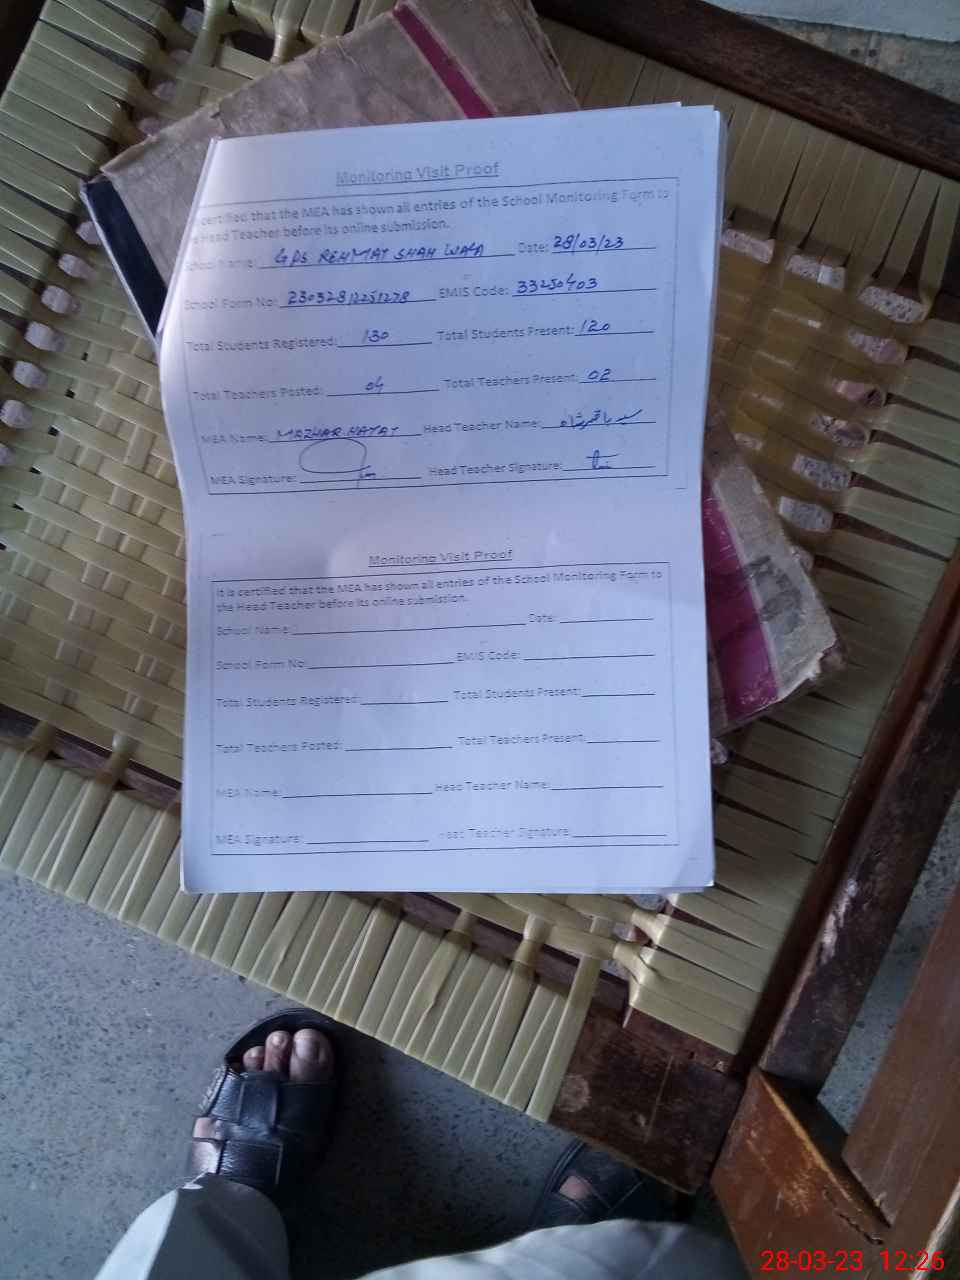 Monitoring Visit Proof
certified that the MEA has shown all entries of the School Monitoring Form to
Head Teacher before its online submission.
School Name: GPS REHMAT SHAH WALA Date: 28/03/23
School Form No: 23032812251278 EMIS Code: 33250403
Total Students Registered: 130 Total Students Present: 120
Total Teachers Posted: 04 Total Teachers Present: 02
MEA Name: MAZHAR HAYAT Head Teacher Name: سید باقر شاہ
MEA Signature: Head Teacher Signature:
Monitoring Visit Proof
It is certified that the MEA has shown all entries of the School Monitoring Form to
the Head Teacher before its online submission.
School Name: Date:
School Form No: EMIS Code:
Total Students Registered: Total Students Present:
Total Teachers Posted: Total Teachers Present:
MEA Name: Head Teacher Name:
MEA Signature: Head Teacher Signature:
28-03-23 12:26